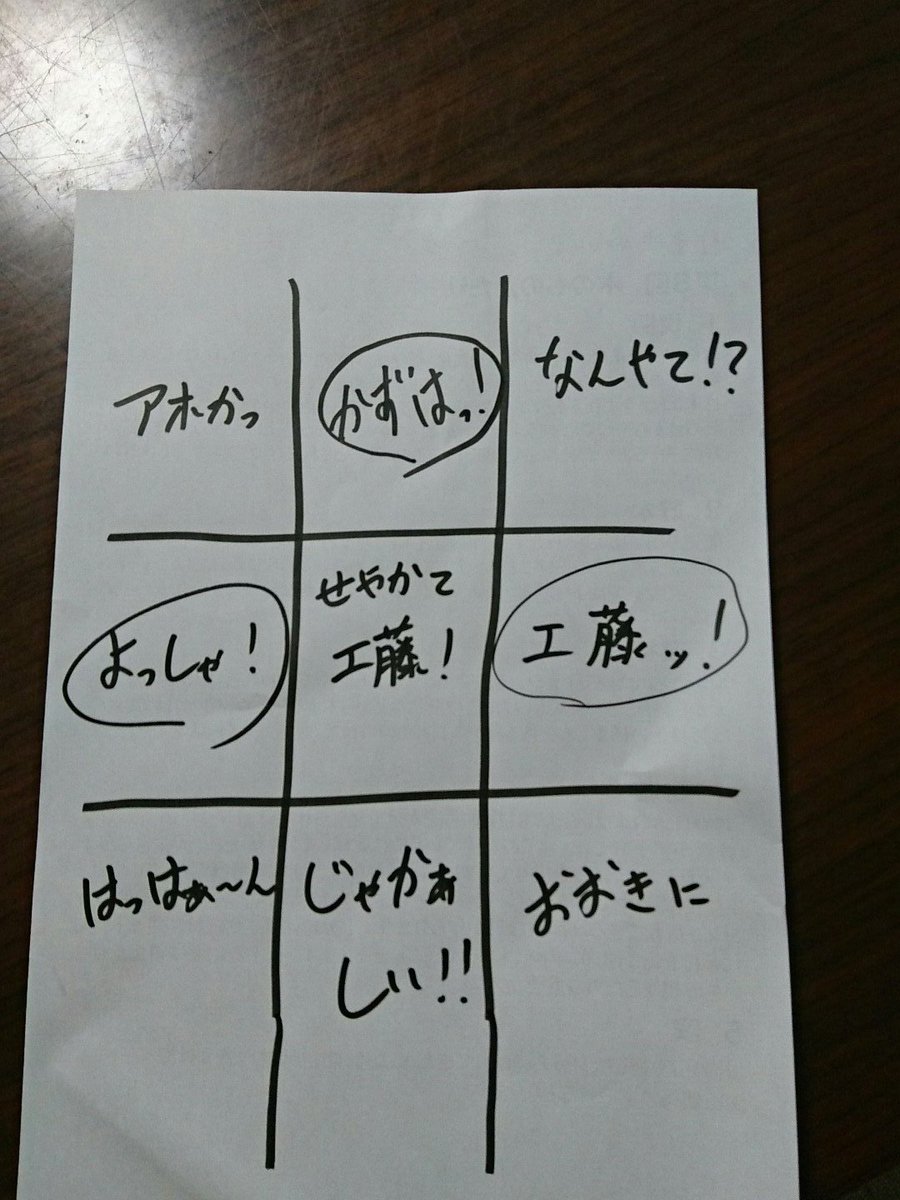 アホかっ
かずはっ!
なんやて!?
よっしゃ!
せやかて
工藤!
工藤ッ!
はっはぁ〜ん
じゃかぁ
しい!!
おおきに